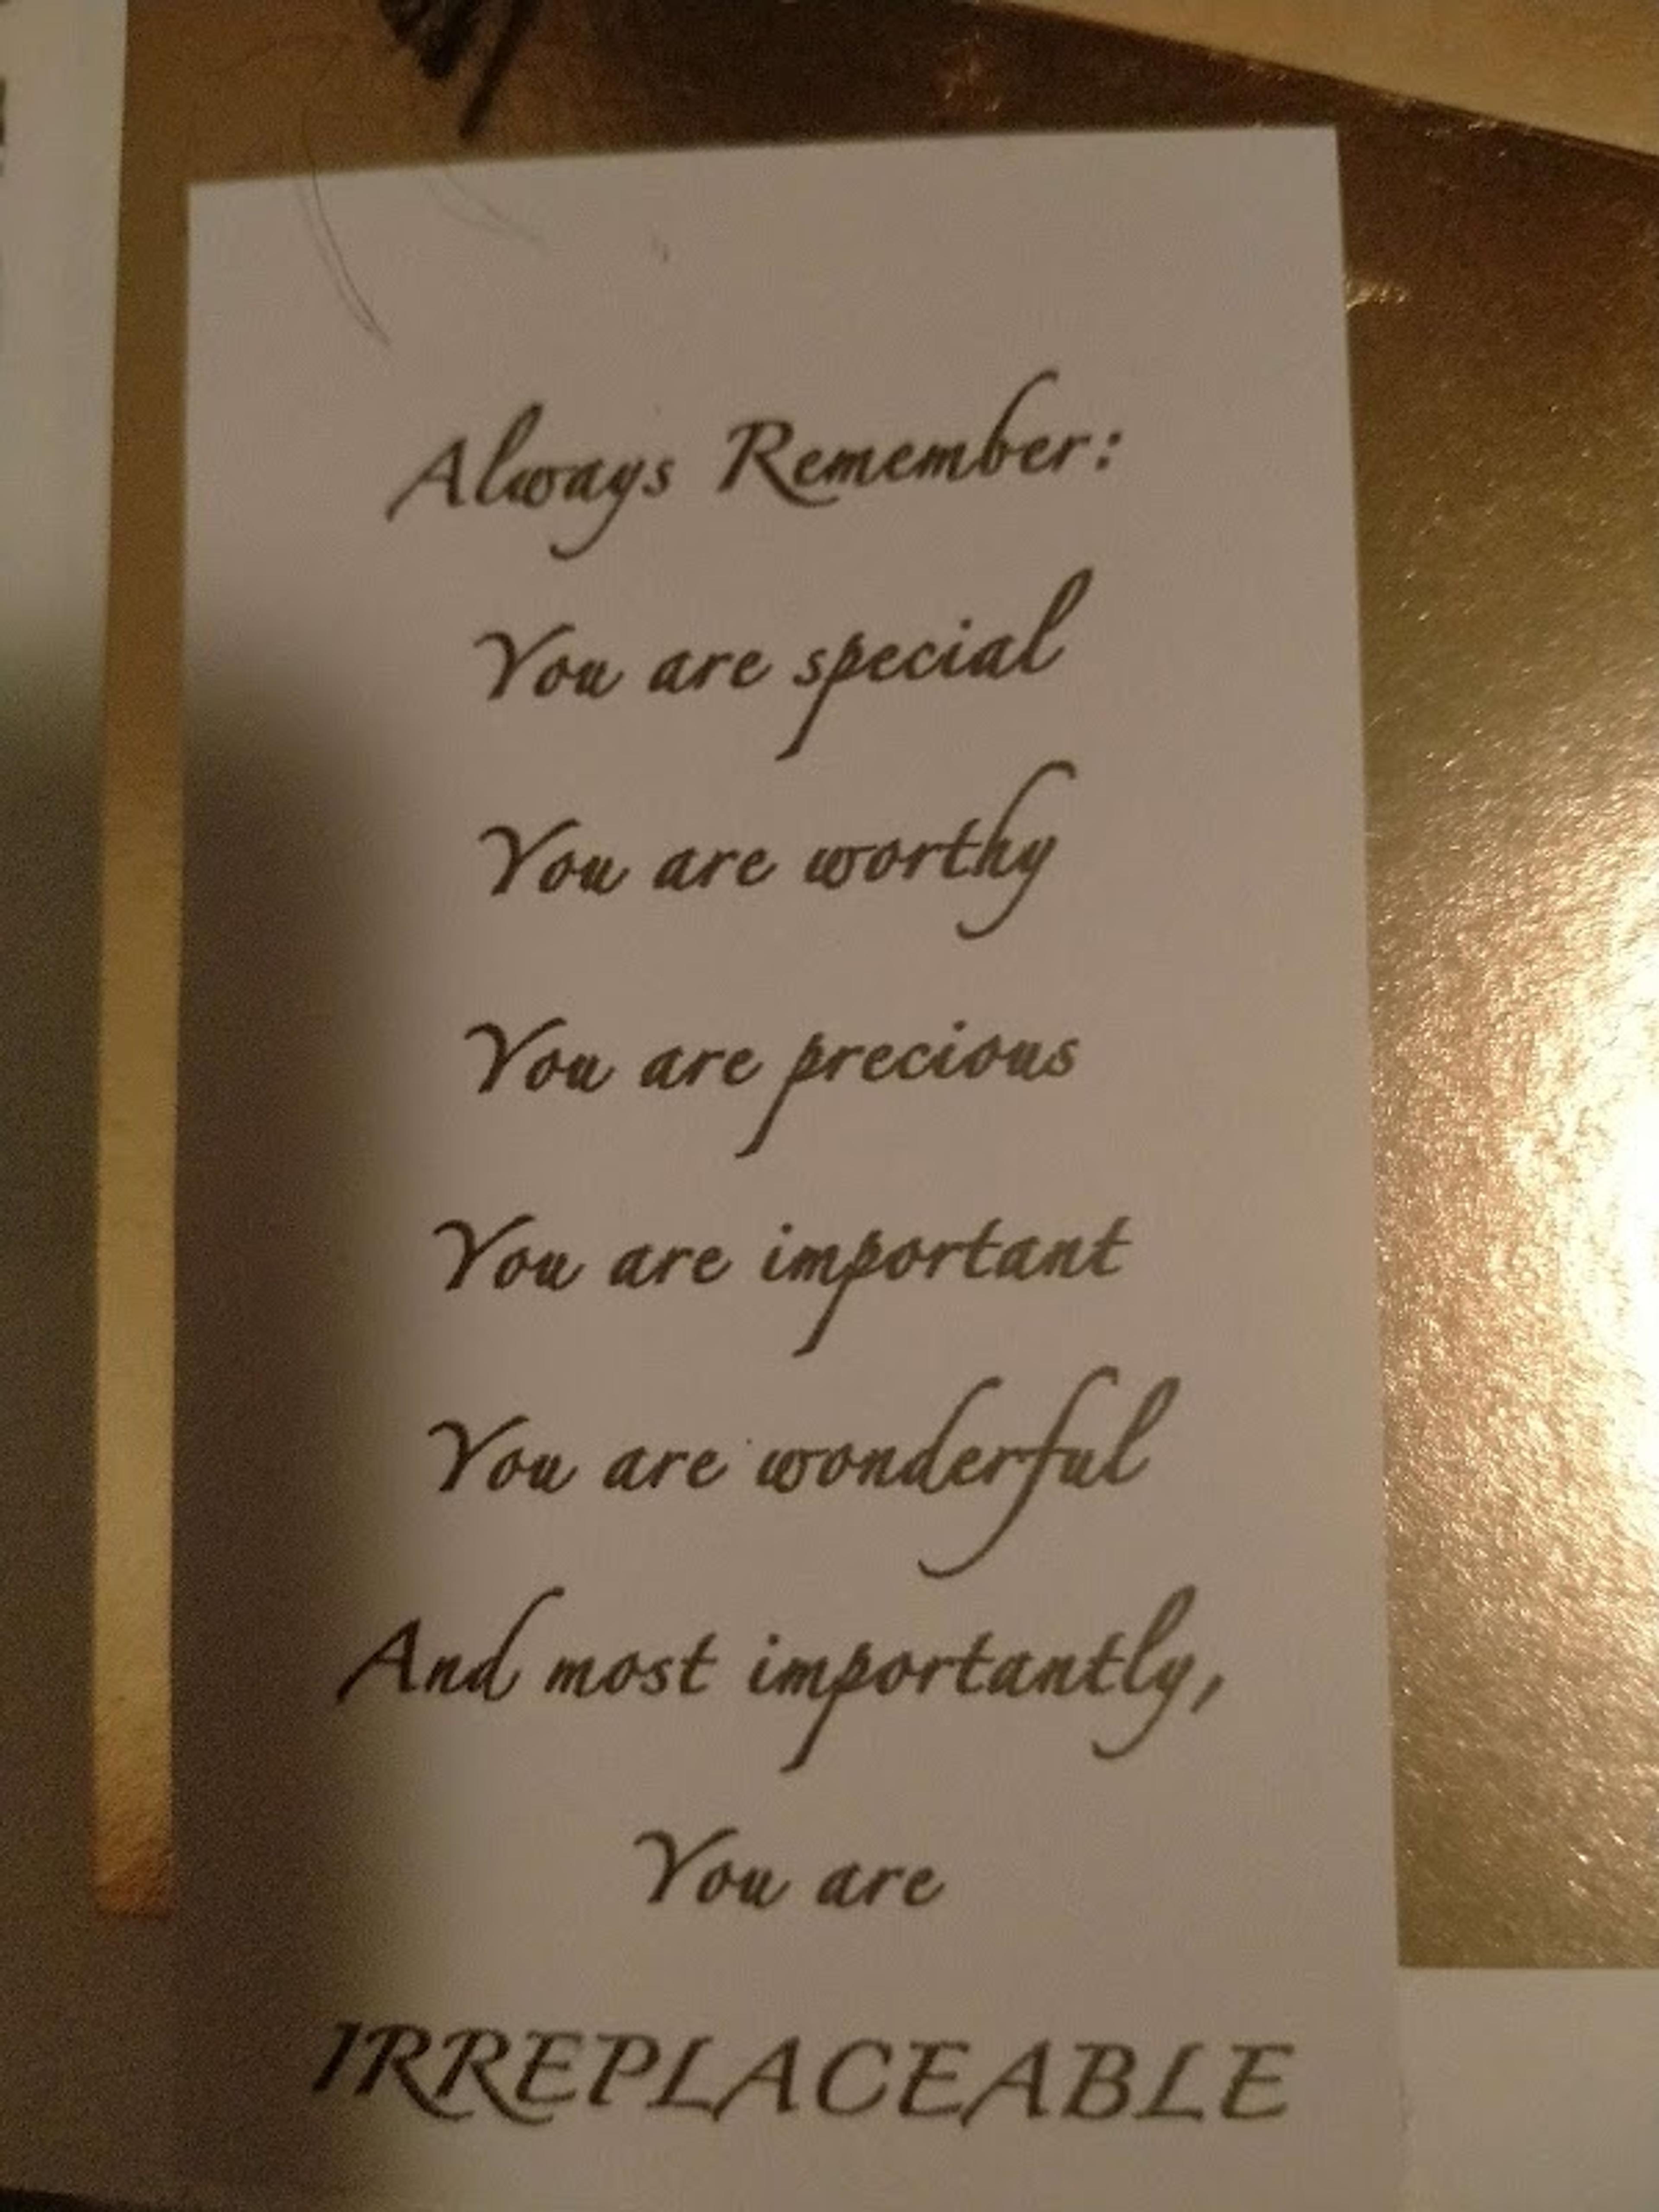 Always Remember:
You are special
You are worthy
You are precious
You are important
You are wonderful
And most importantly,
You are
IRREPLACEABLE